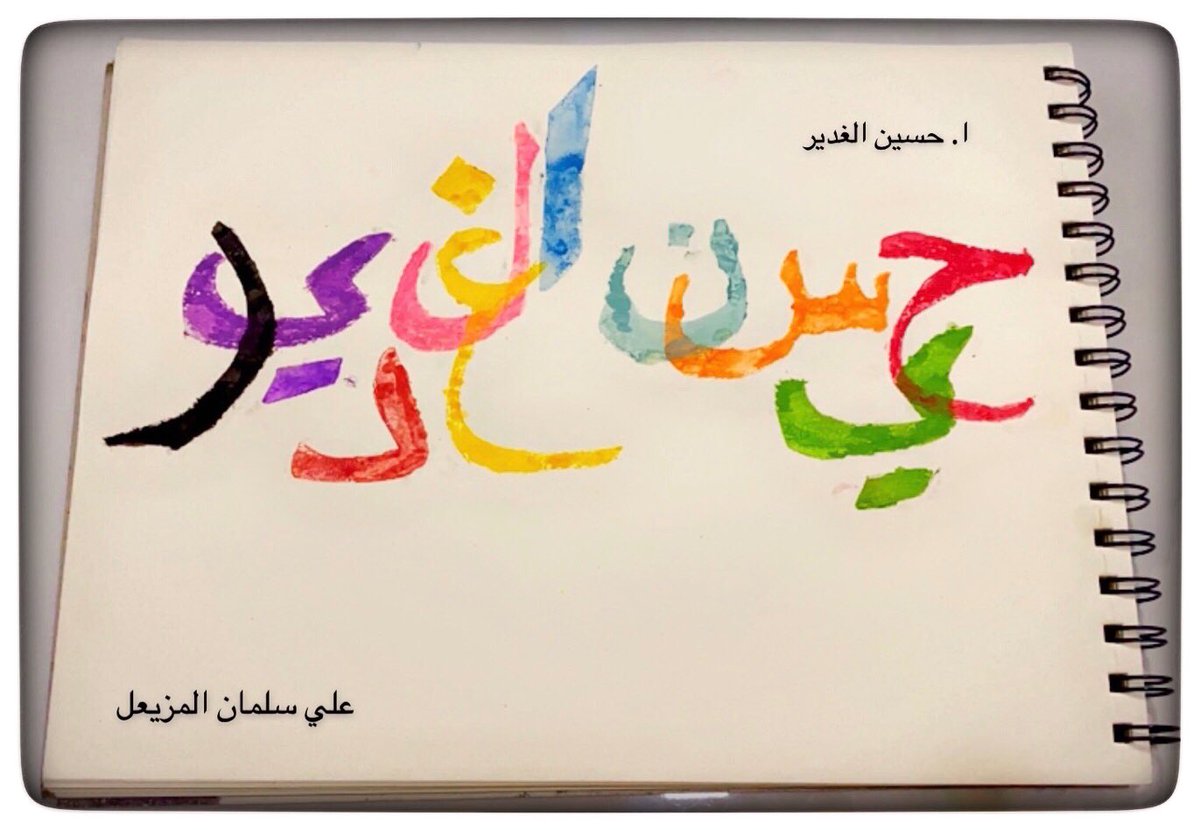 ا. حسين الغدير
حسين الغدير
علي سلمان المزيعل